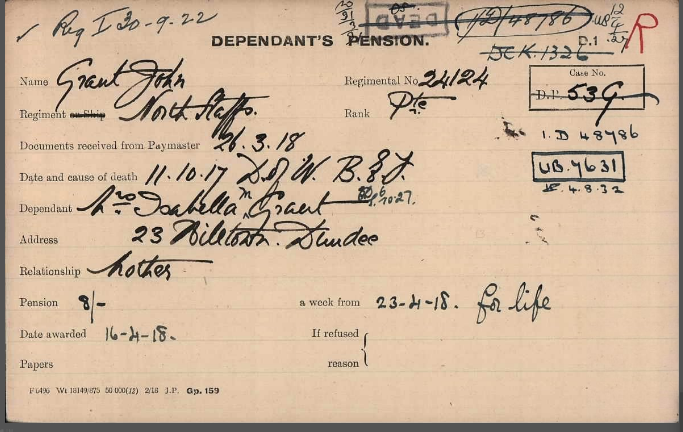 ✓ Reg I 30-9-22
DEAD
1D/48786
DEPENDANT'S PENSION.
DCK.1326
D.1
R
Name Grant John
Regimental No. 24124
Case No.
D.P. 53G
Regiment or Ship North Staffs.
Rank Pte
1.D 48786
Documents received from Paymaster 26.3.18
UB.7631
Date and cause of death 11.10.17 D. of W. B.E.F.
4.8.32
Dependant Mrs Isabella M Grant
Address 23 Miletown. Dundee
Relationship Mother
Pension 8/- a week from 23-4-18. for life
Date awarded 16-4-18. If refused
Papers reason
Wt 18149/875 50 000(12) 2/18 J.P. Gp. 159